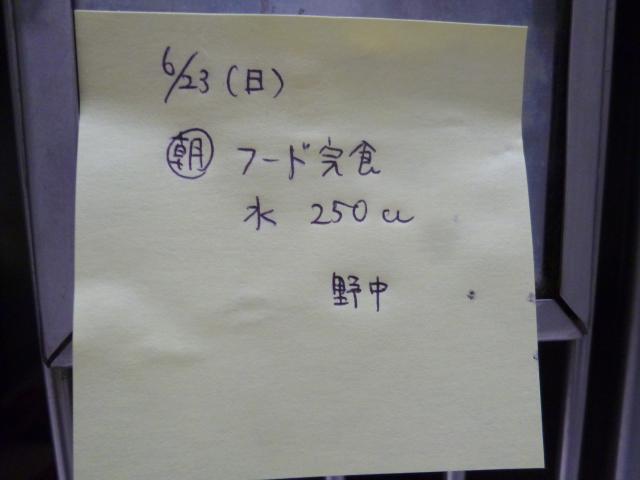 6/23(日)
朝 フード完食
水 250cc
野中